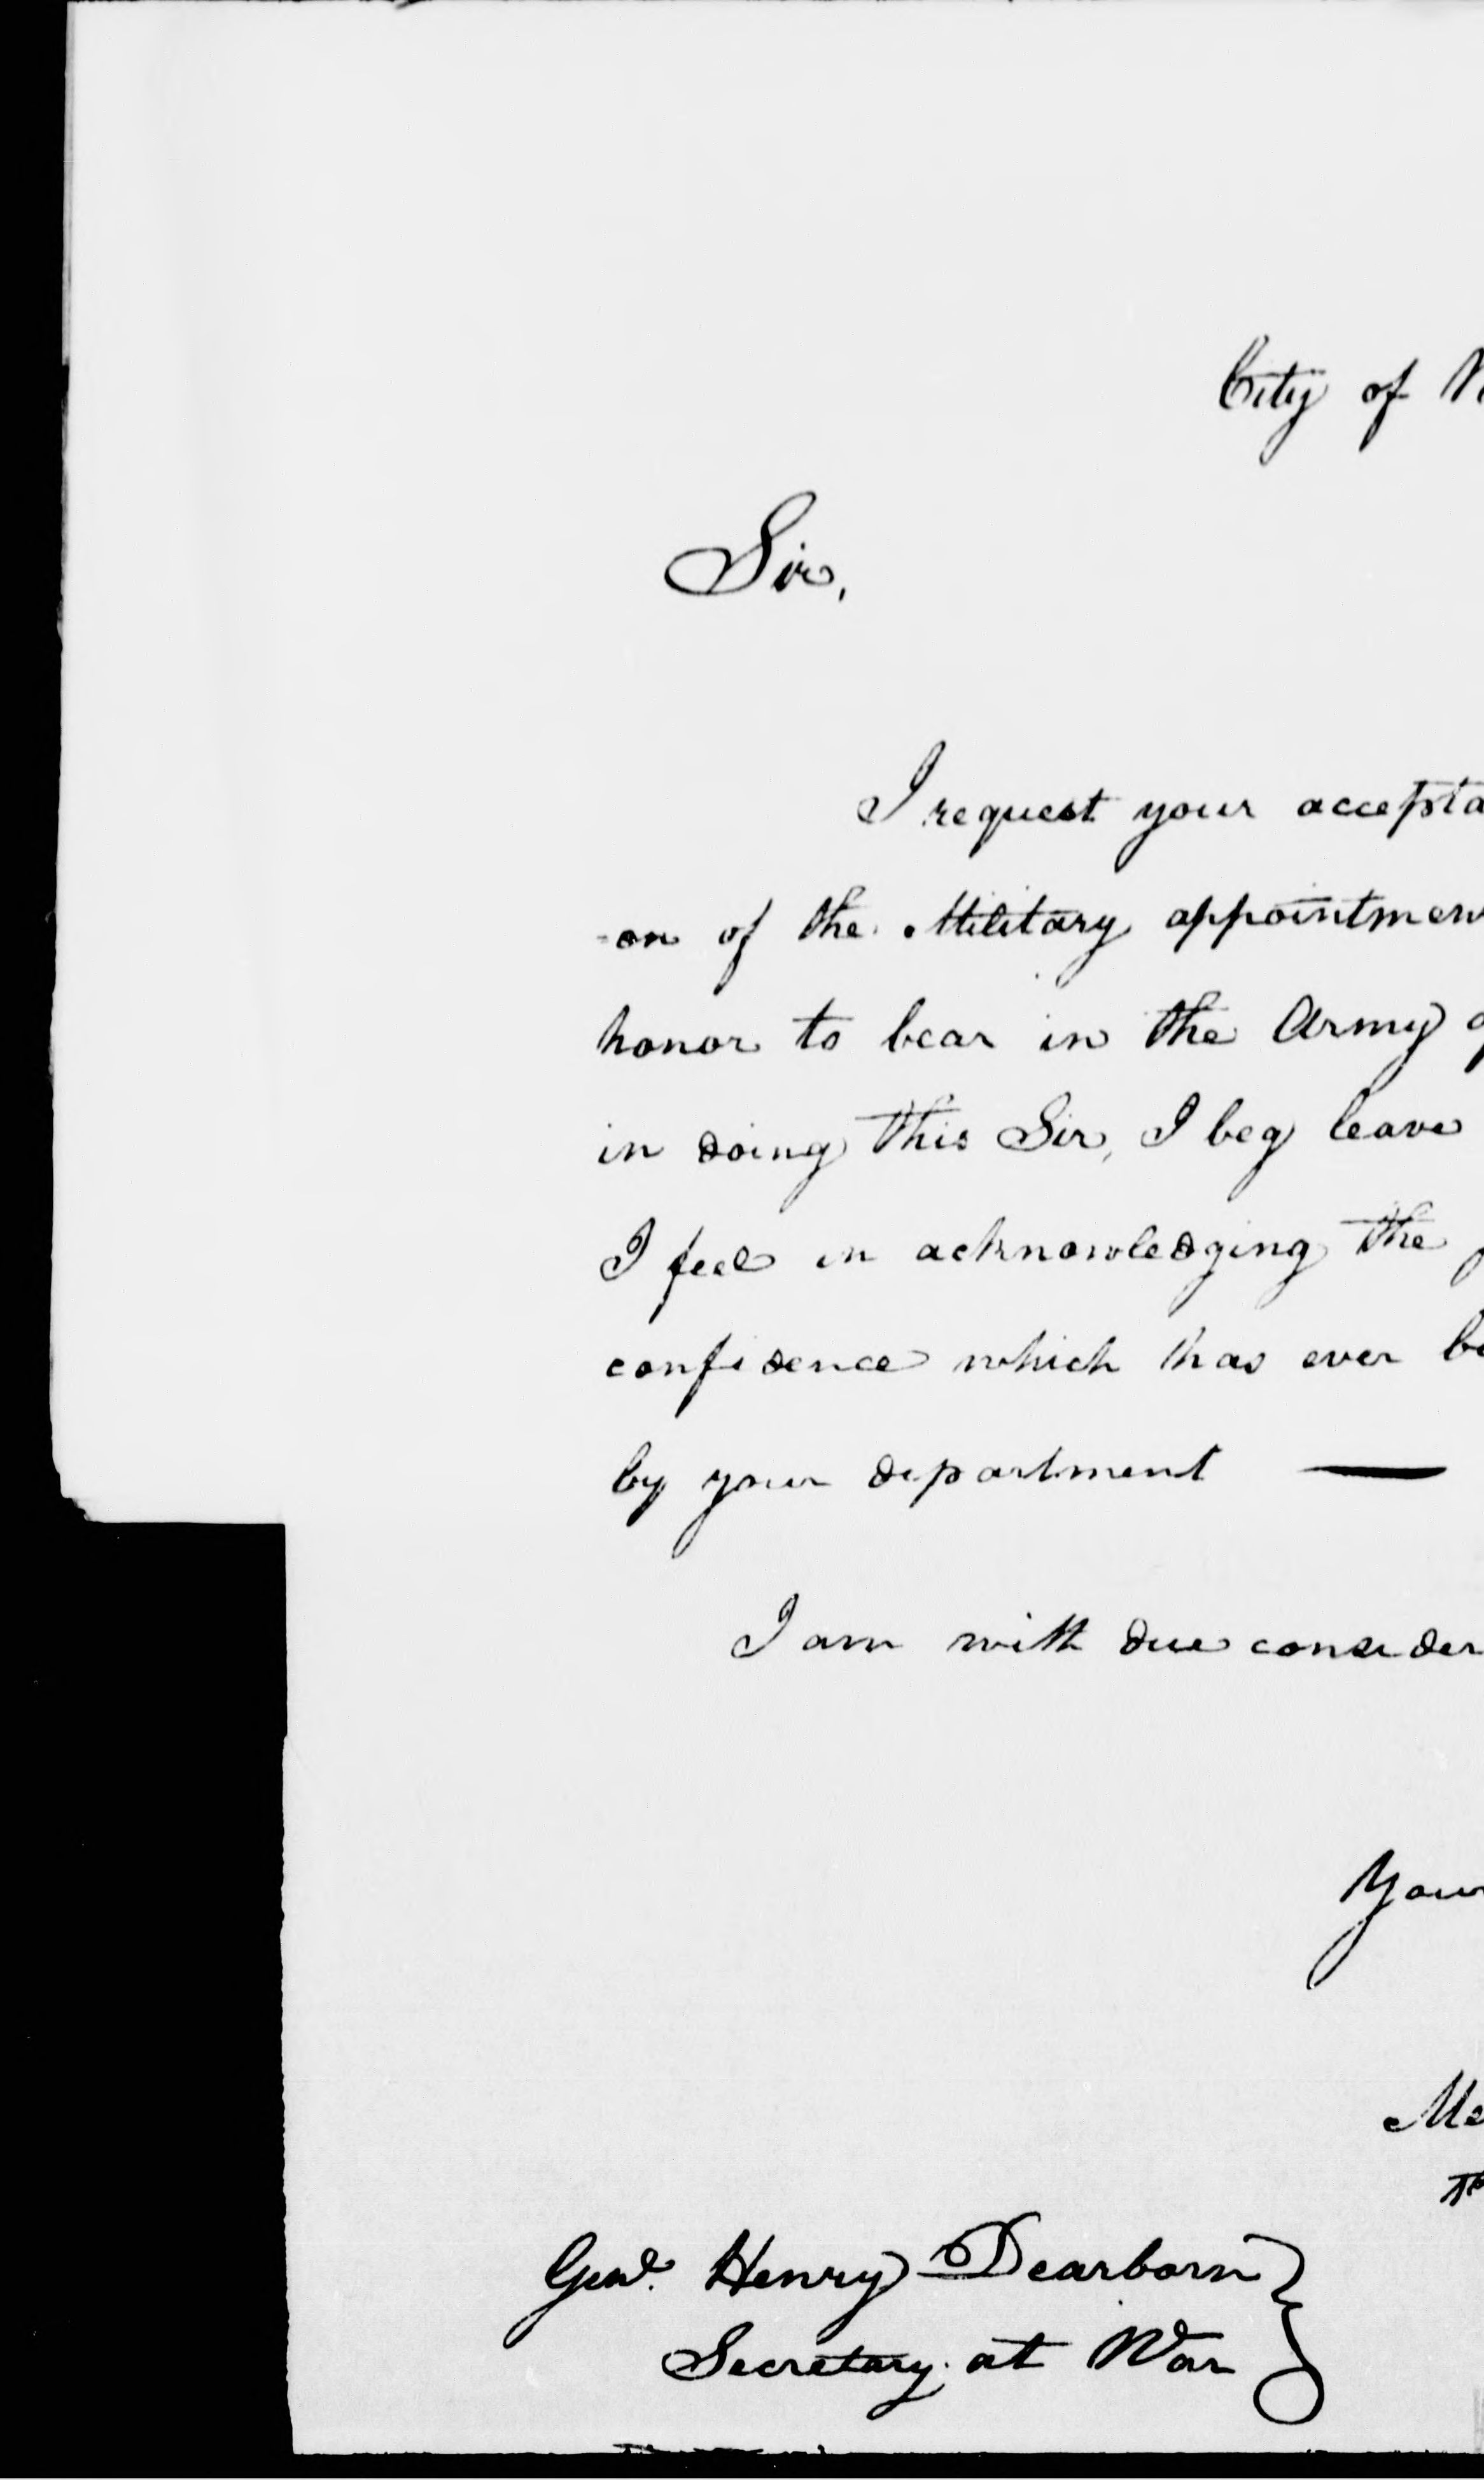 City of
Sir,
I request your accepta
-on of the Military appointmen
honor to bear in the Army
in doing this Sir, I beg leave
I feel in acknowledging the
confidence which has ever be
by your department —
I am with due consider
Your
Me
Genl. Henry Dearborn
Secretary at War